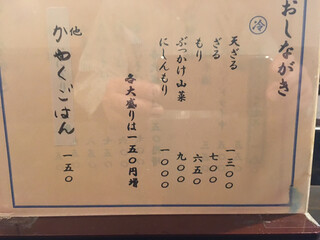 おしながき
冷
天ざる 一三〇〇
ざる 七〇〇
もり 六五〇
ぶっかけ山菜 九〇〇
にしんもり 一〇〇〇
各大盛りは一五〇円増
他
かやくごはん 一五〇